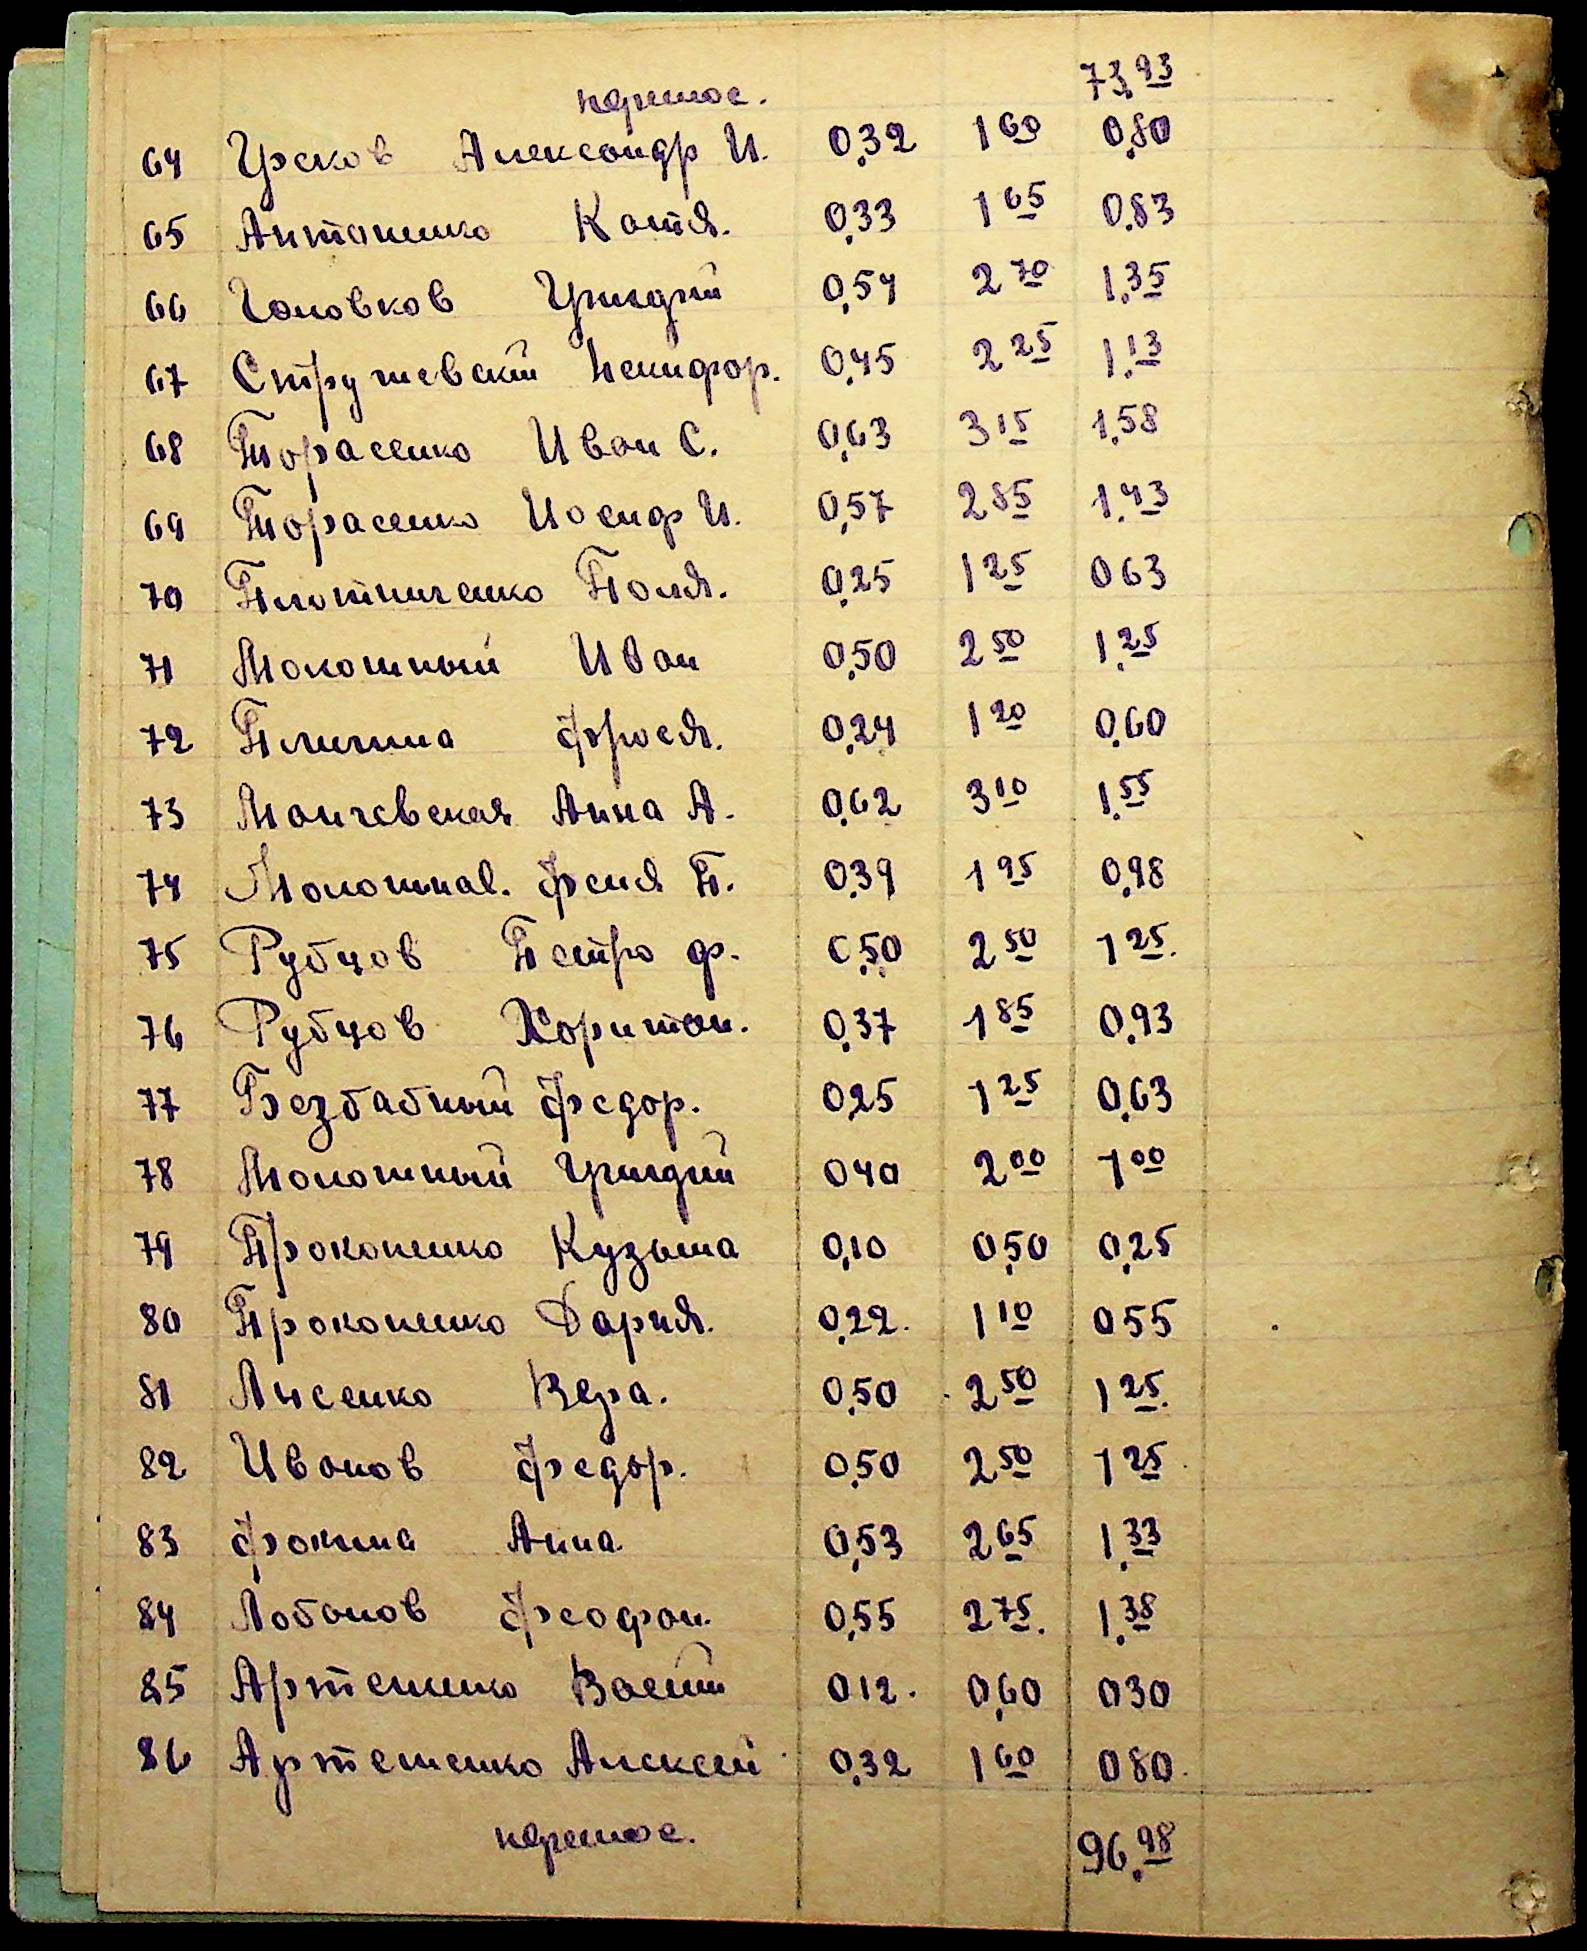 перенос. 73,93
64 Усков Александр И. 0,32 1 60 0,80
65 Антоненко Катя. 0,33 1 65 0,83
66 Головков Григорий 0,54 2 70 1,35
67 Струтевский Никифор. 0,45 2 25 1,13
68 Тарасенко Иван С. 0,63 3 15 1,58
69 Тарасенко Иосиф И. 0,57 2 85 1,43
70 Плотниченко Поля. 0,25 1 25 0 63
71 Молошный Иван 0,50 2 50 1,25
72 Фрося. 0,24 1 20 0,60
73 Манчевская Анна А. 0,62 3 10 1,55
74 Молошная. Феня П. 0,39 1 95 0,98
75 Рубцов Петро Ф. 0,50 2 50 1 25.
76 Рубцов Харитон. 0,37 1 85 0,93
77 Безбабный Федор. 0,25 1 25 0,63
78 Молошный Григорий 0 40 2 00 1 00
79 Прокопенко Кузьма 0,10 0,50 0,25
80 Прокопенко Дария. 0,22. 1 10 0 55
81 Лисенко Вера. 0,50 2 50 1 25.
82 Иванов Федор. 0,50 2 50 1 25
83 Фокина Анна 0,53 2 65 1,33
84 Лобанов Феофан. 0,55 2 75. 1,38
85 Артеменко Васили 0 12. 0,60 0 30
86 Артеменко Алексей 0,32 1 60 0 80.
перенос. 96,98